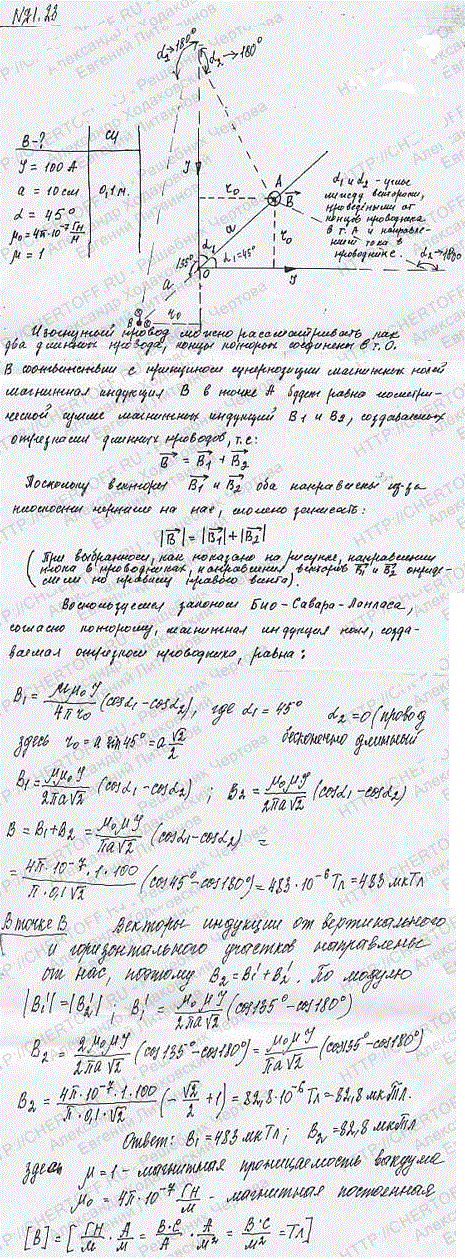 №21.23
α₁→180°
α₂→180°
B-? СИ
I = 100 А
a = 10 см 0,1 м.
α = 45°
μ₀=4π·10⁻⁷ Гн/м
μ = 1
I
r₀
A
B
a
r₀
α₁
α₁=45°
135°
O
I
a
r₀
B
α₂→180
α₁ и α₂ - углы
между векторами,
проведёнными от
концов проводника
в т. А и направле-
нием тока в
проводнике.
Изогнутый провод можно рассматривать как
два длинных провода, концы которых соединены в т.О.
В соответствии с принципом суперпозиции магнитных полей
магнитная индукция B в точке А будет равна геометри-
ческой сумме магнитных индукций B1 и B2, создаваемых
отрезками длинных проводов, т.е:
B = B₁ + B₂
Поскольку векторы B₁ и B₂ оба направлены из-за
плоскости чертежа на нас, можно записать:
|B| = |B₁| + |B₂|
(При выбранном, как показано на рисунке, направлении
тока в проводниках, направления векторов B₁ и B₂ опреде-
лем по правилу правого винта).
Воспользуемся законом Био-Савара-Лапласа,
согласно которому, магнитная индукция поля, созда-
ваемая отрезком проводника, равна:
B₁ = μμ₀I/4πr₀ (cosα₁ - cosα₂), где α₁ = 45° α₂=0 (провод
здесь r₀ = a sin45° = a √2/2 бесконечно длинный
B₁ = μμ₀I/2πa√2 (cosα₁ - cosα₂) ; B₂ = μ₀μI/2πa√2 (cosα₁ - cosα₂)
B = B₁+B₂ = μ₀μI/πa√2 (cosα₁ - cosα₂) =
= 4π·10⁻⁷·1·100/π·0,1√2 (cos45° - cos180°) = 483·10⁻⁶Тл = 483 мкТл
В точке B. Векторы индукции от вертикального
и горизонтального участков направлены
от нас, поэтому B₂=B₁'+B₂'. По модулю
|B₁'|=|B₂'| ; B₁' = μ₀μI/2πa√2 (cos135° - cos180°)
B₂ = 2μ₀μI/2πa√2 (cos135° - cos180°) = μ₀μI/πa√2 (cos135° - cos180°)
B₂ = 4π·10⁻⁷·1·100/π·0,1·√2 (-√2/2 + 1) = 82,8·10⁻⁶Тл = 82,8 мкТл.
Ответ: B₁ = 483 мкТл; B₂ = 82,8 мкТл
здесь μ = 1 - магнитная проницаемость вакуума
μ₀ = 4π·10⁻⁷ Гн/м - магнитная постоянная
[B] = [Гн/м · А/м = В·с/А · А/м² = В·с/м² = Тл]